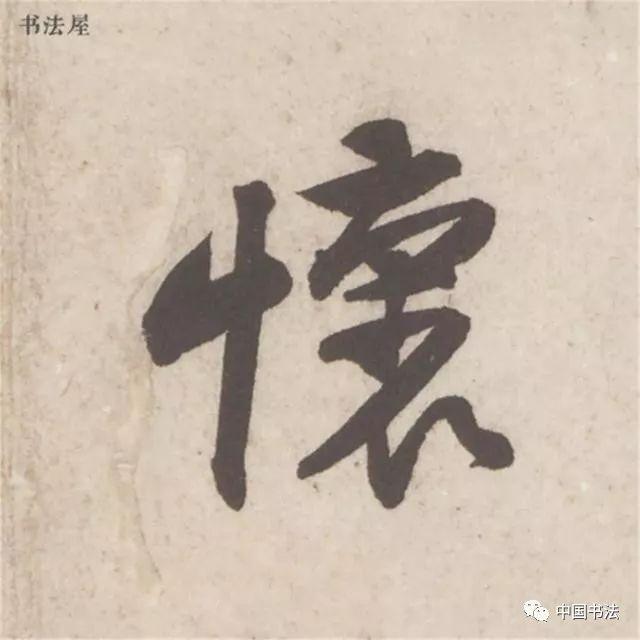 书法屋
懷
中国书法